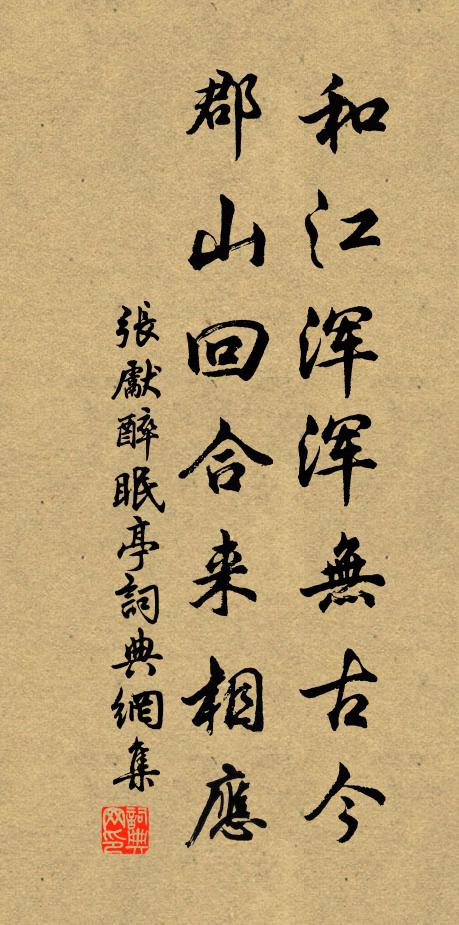 和江浑浑無古今
郡山回合来相應
張獻醉眠亭詞典網集
詞典網印